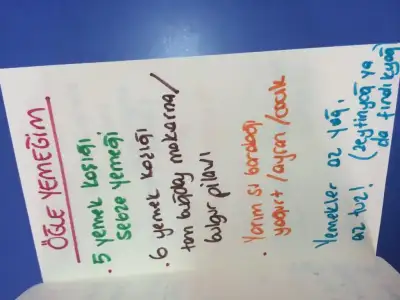 ÖĞLE YEMEĞİM
• 5 yemek kaşığı
sebze yemeği
• 6 yemek kaşığı
tam buğday makarna/
bulgur pilavı
• Yarım su bardağı
yoğurt/ayran/cacık
Yemekler az yağ,
az tuz! (zeytinyağ ya
da fındıkyağ)